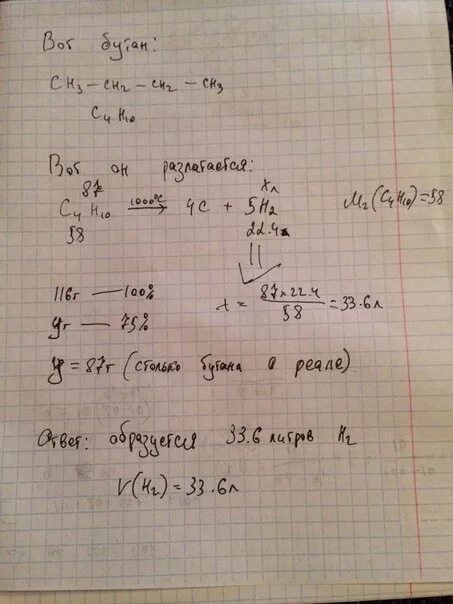 Вот бутан:
CH3 – CH2 – CH2 – CH3
C4H10
Вот он разлагается:
87 xл
C4H10 1000°C → 4C + 5H2 Mr(C4H10)=58
58 22.4
116г — 100% x = 87×22.4 / 58 = 33.6л
yг — 75%
y = 87г (столько бутана в реале)
Ответ: образуется 33.6 литров H2
V(H2) = 33.6л